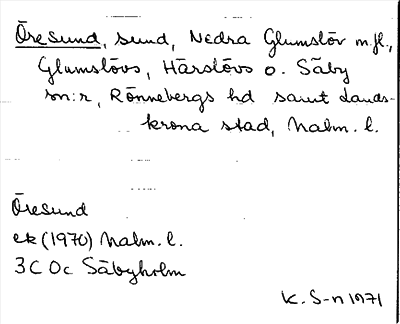 Öresund, sund, Nedra Glumslöv m.fl.,
Glumslövs, Härslövs o. Säby
sn:r, Rönnebergs hd samt Lands-
krona stad, Malm. l.
Öresund
ek (1970) Malm. l.
3C 0c Säbyholm
K. S-n 1971